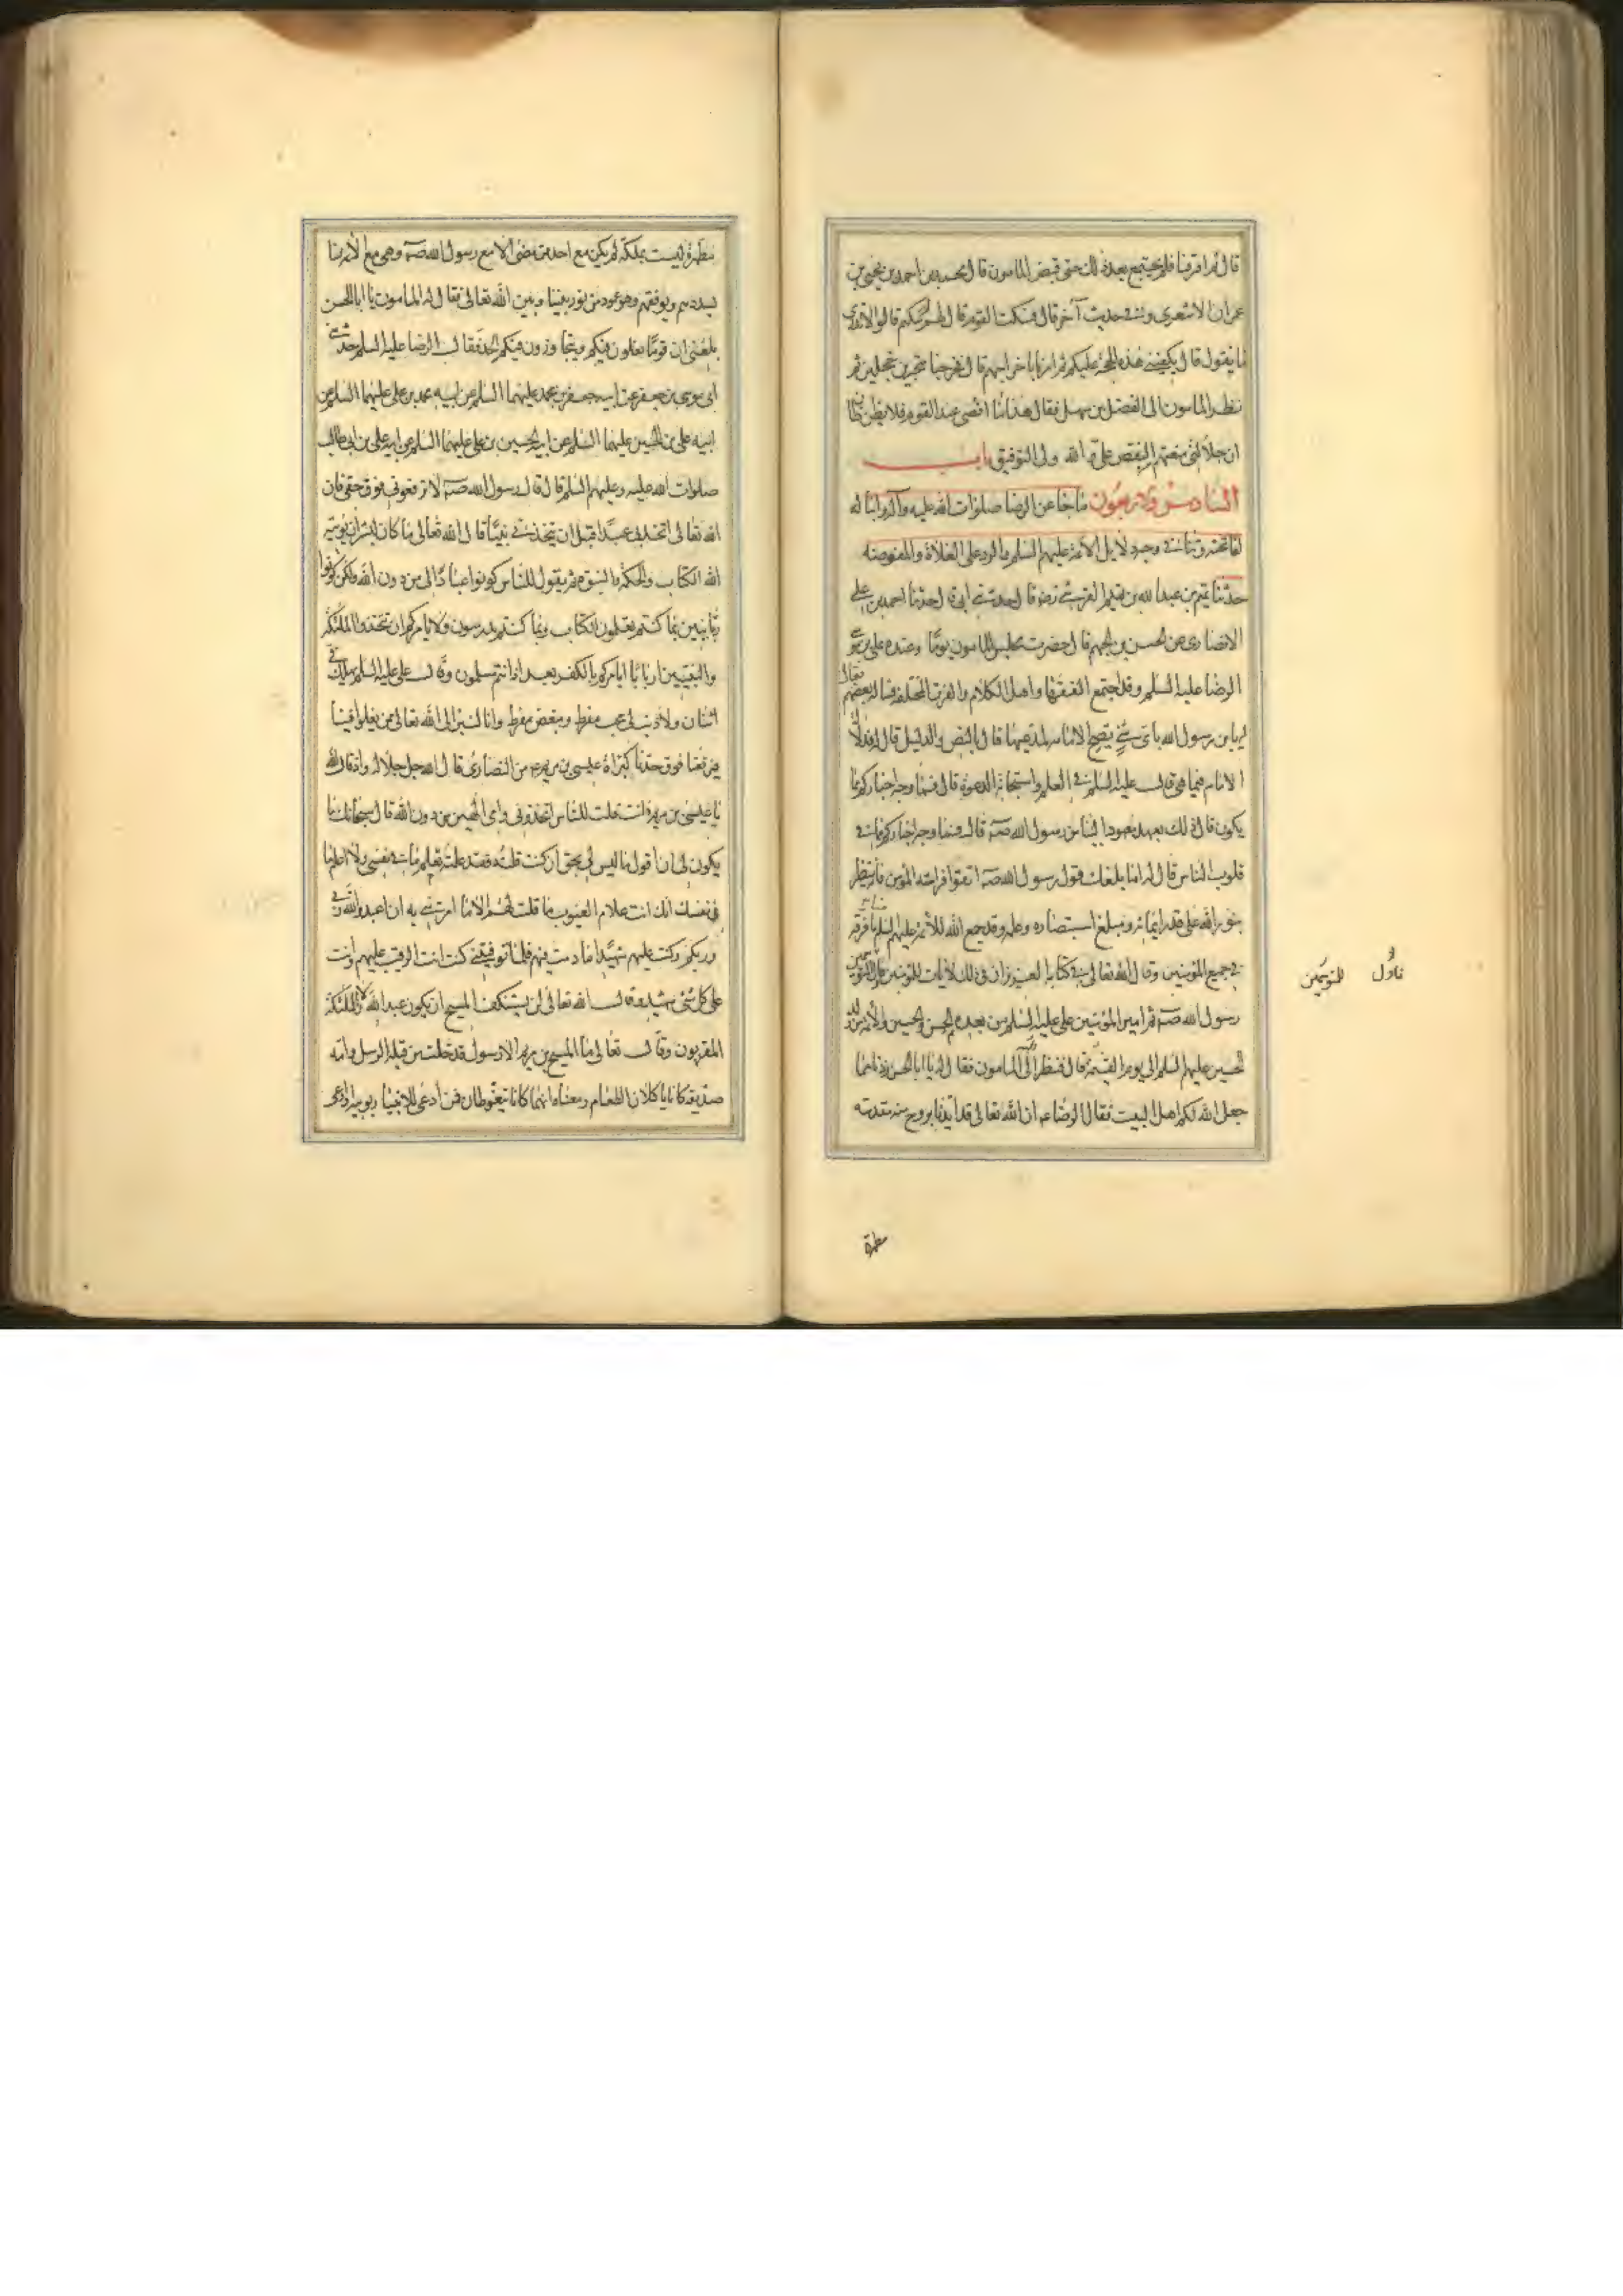 قال ثم افترقنا فلم يجتمع بعد ذلك حتى قبض المامون قال محمد بن احمد بن يحيى بن
عمران الاشعري وفي حديث آخر قال فسكت القوم فقال لهم لم سكتم قالوا لا ندري
ما يقول قال يكفيني هذه الحجة عليكم ثم امر باخراجهم قال فخرجنا متحيرين خجلين ثم
نظر المامون الى الفضل بن سهل فقال هذا اقصى ما عند القوم فلا يظن ظان
ان جلالتي منعتهم النقض علي والله ولي التوفيق باب
السادس والاربعون ما جاء عن الرضا صلوات الله عليه وآله
في وجه دلايل الائمة عليهم السلم والرد على الغلاة والمفوضة
حدثنا تميم بن عبد الله بن تميم القرشي رضه قال حدثني ابي قال حدثنا احمد بن علي
الانصاري عن الحسن بن الجهم قال حضرت مجلس المامون يوما وعنده علي بن موسى
الرضا عليه السلم وقد اجتمع الفقهاء واهل الكلام والفرق المختلفة فسأله بعضهم فقال
له يا بن رسول الله باي شي يصح الامامة لمدعيها قال بالنص والدليل قال له فدلالة
الامام فيما هي قال عليه السلم في العلم واستجابة الدعوة قال فما وجه اخباركم بما
يكون قال ذلك بعهد معهود الينا من رسول الله صه قال فما وجه اخباركم بما في
قلوب الناس قال له اما بلغك قول رسول الله صه اتقوا فراسة المؤمن فانه ينظر
بنور الله على قدر ايمانه ومبلغ استبصاره وعلمه وقد جمع الله للائمة عليهم السلم ما فرقه
في جميع المؤمنين وقال الله تعالى في كتابه العزيز ان في ذلك لآيات للمتوسمين فاول المتوسمين
رسول الله صه ثم امير المؤمنين علي عليه السلم من بعده ثم الحسن والحسين والائمة من ولد
الحسين عليهم السلم الى يوم القيمة قال فنظر اليه المامون فقال له يا ابا الحسن زدنا مما
جعل الله لكم اهل البيت فقال الرضا عم ان الله تعالى قد ايدنا بروح منه مقدسة
فاول
للمتوسمين
مطهرة
مطهرة ليست بملك لم يكن مع احد ممن مضى الا مع رسول الله صه وهي مع الائمة منا
يسددهم ويوفقهم وهو عمود من نور بيننا وبين الله تعالى فقال له المامون يا ابا الحسن
بلغني ان قوما يغلون فيكم ويتجاوزون فيكم الحد فقال الرضا عليه السلم حدثني
ابي موسى بن جعفر عن ابيه جعفر بن محمد عليهما السلم عن ابيه محمد بن علي عليهما السلم عن
ابيه علي بن الحسين عليهما السلم عن ابيه الحسين بن علي عليهما السلم عن ابيه علي بن ابي طالب
صلوات الله عليه وعليهم السلم قال قال رسول الله صه لا ترفعوني فوق حقي فان
الله تعالى اتخذني عبدا قبل ان يتخذني نبيا قال الله تعالى ما كان لبشر ان يوتيه
الله الكتاب والحكم والنبوة ثم يقول للناس كونوا عبادا لي من دون الله ولكن كونوا
ربانيين بما كنتم تعلمون الكتاب وبما كنتم تدرسون ولا يامركم ان تتخذوا الملئكة
والنبيين اربابا ايامركم بالكفر بعد اذ انتم مسلمون وقال علي عليه السلم يهلك في
اثنان ولا ذنب لي محب مفرط ومبغض مفرط وانا لنبرا الى الله تعالى ممن يغلوا فينا
فيرفعنا فوق حدنا كبراءة عيسى بن مريم عم من النصارى قال الله جل جلاله واذ قال الله
يا عيسى بن مريم ءانت قلت للناس اتخذوني وامي الهين من دون الله قال سبحانك ما
يكون لي ان اقول ما ليس لي بحق ان كنت قلته فقد علمته تعلم ما في نفسي ولا اعلم ما
في نفسك انك انت علام الغيوب ما قلت لهم الا ما امرتني به ان اعبدوا الله ربي
وربكم وكنت عليهم شهيدا ما دمت فيهم فلما توفيتني كنت انت الرقيب عليهم وانت
على كل شئ شهيد وقال الله تعالى لن يستنكف المسيح ان يكون عبدا لله ولا الملئكة
المقربون وقال تعالى ما المسيح بن مريم الا رسول قد خلت من قبله الرسل وامه
صديقة كانا ياكلان الطعام ومعناه انهما كانا يتغوطان فمن ادعى للانبياء ربوبية او ادعى